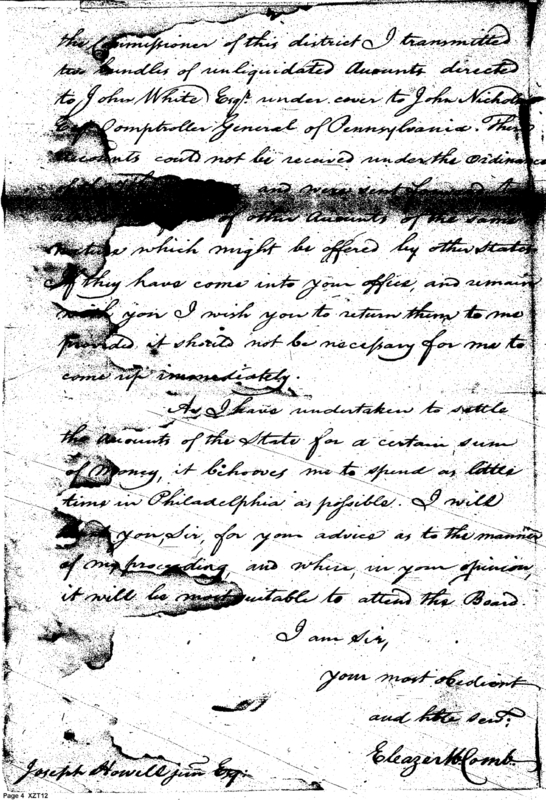 the Commissioner of this district I transmitted
two bundles of unliquidated Accounts directed
to John White Esqr. under cover to John Nichols
Comptroller General of Pennsylvania. These
Accounts could not be received under the Ordinance
of and were sent forward
of other Accounts of the same
nature which might be offered by other States.
If they have come into your office, and remain
with you I wish you to return them to me
provided it should not be necessary for me to
come up immediately.
As I have undertaken to settle
the Accounts of the State for a certain sum
of Money, it behooves me to spend as little
time in Philadelphia as possible. I will
you, Sir, for your advice as to the manner
of my proceeding, and when, in your opinion,
it will be most suitable to attend the Board.
I am Sir,
your most obedient
and hble servt.
Eleazer McComb.
Joseph Howell junr Esqr.
Page 4 XZT12